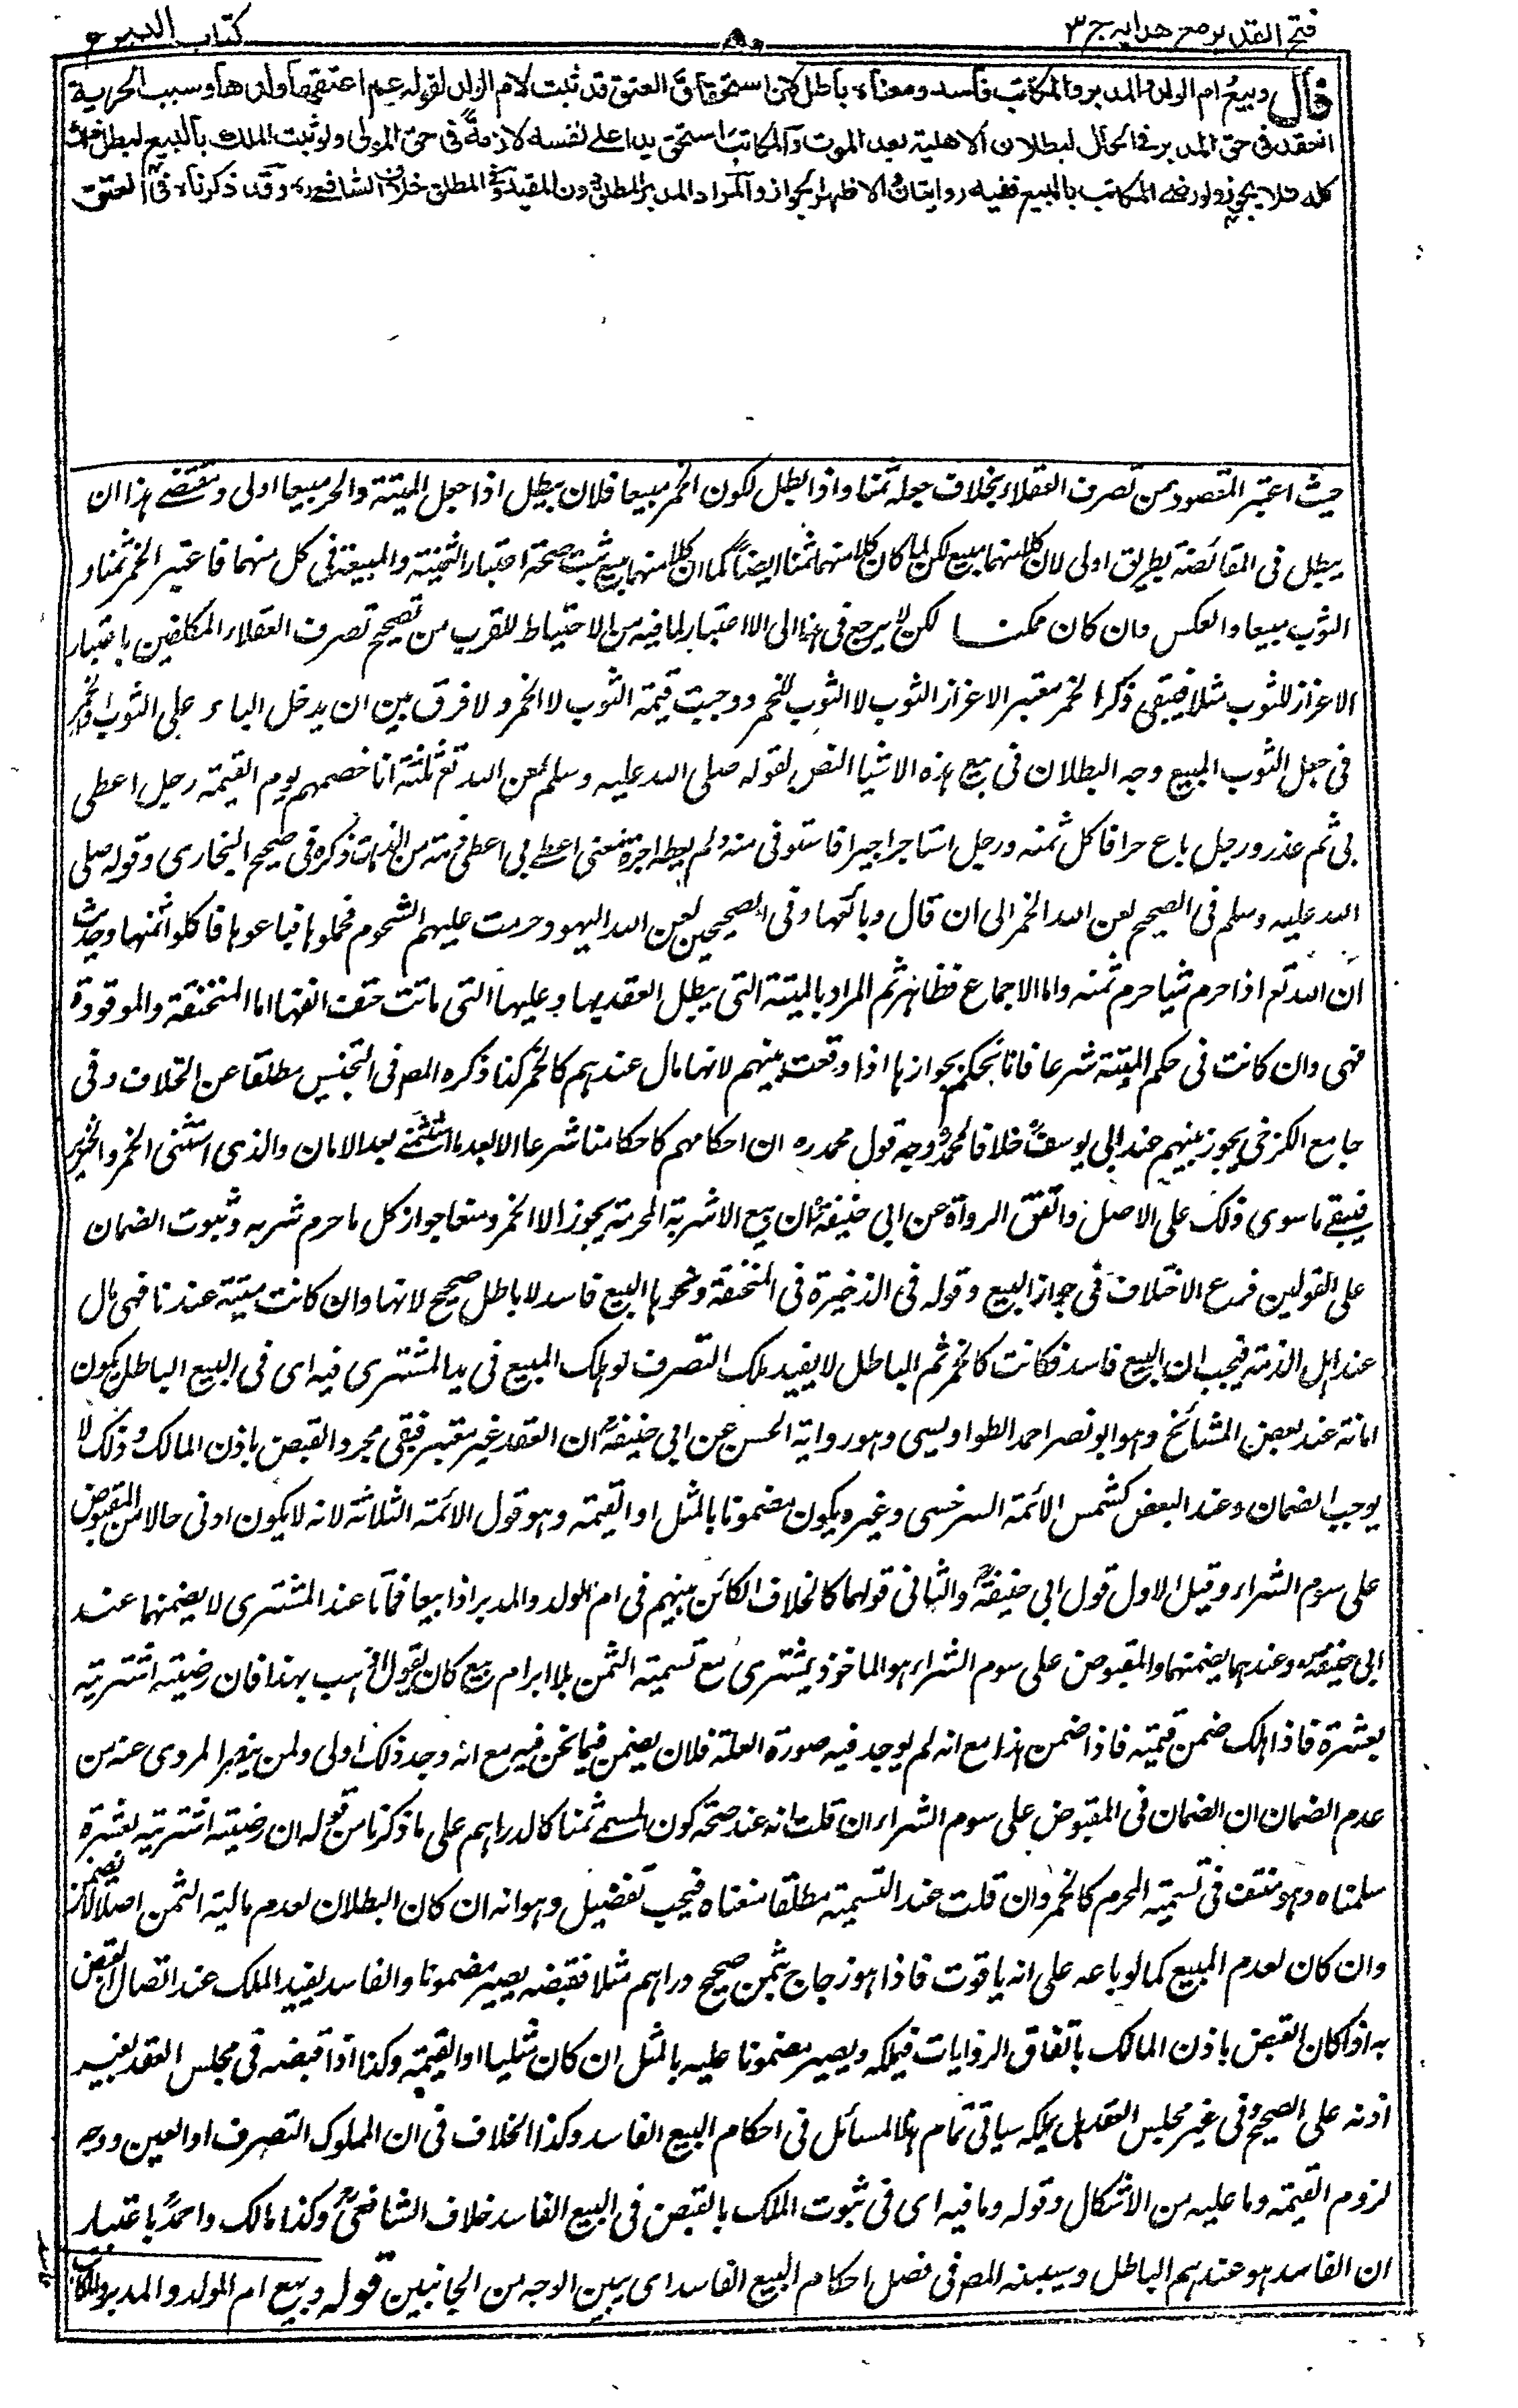 فتح القدیر مع هدایه ج ٣
كتاب البيوع
قال وبيع ام الولد والمدبر والمكاتب فاسد ومعناه باطل لان استحقاق العتق قد ثبت لام الولد لقوله عم اعتقها ولدها وسبب الحرية
انعقد فى حق المدبر فى الحال لبطلان الاهلية بعد الموت والمكاتب استحق يدا على نفسه لازمة فى حق المولى ولو ثبت الملك بالبيع لبطل ذلك
كله فلا يجوز ولو رضى المكاتب بالبيع ففيه روايتان والاظهر الجواز والمراد المدبر المطلق دون المقيد وفى المطلق خلاف الشافعى ره وقد ذكرناه فى العتق
حيث اعتبر المقصود من تصرف العقلاء بخلاف جعله ثمنا واذا بطل لكون الخمر مبيعا فلان يبطل اذا جعل الميتة والحر مبيعا اولى ومقتضى هذا ان
يبطل فى المقائضة بطريق اولى لان كلا منهما مبيع لكن لما كان كلا منهما ثمنا ايضا كما ان كلا منهما مبيع ثبت صحة اعتبار الثمنية والمبيعية فى كل منهما فاعتبر الخمر ثمنا و
الثوب مبيعا والعكس وان كان ممكنا لكن لا يرجع فى هذا الى الا اعتبار لما فيه من الاحتياط للقرب من تصحيح تصرف العقلاء المكلفين باعتبار
الاعزاز للثوب مثلا فيبقى ذكر الخمر معتبر الاعزاز الثوب لا الثوب للخمر ووجبت قيمة الثوب لا الخمر ولا فرق بين ان يدخل الباء على الثوب او الخمر
فى جعل الثوب المبيع وجه البطلان فى بيع هذه الاشيا النص لقوله صلى الله عليه وسلم عن الله تع ثلثة انا خصمهم يوم القيمة رجل اعطى
بى ثم غدر ورجل باع حرا فاكل ثمنه ورجل استاجر اجيرا فاستوفى منه ولم يعطه اجرة فمعنى اعطى بى اعطى ذمته من الذمات ذكره فى صحيح البخارى وقوله صلى
الله عليه وسلم فى الصحيح لعن الله الخمر الى ان قال وبائعها وفى الصحيحين لعن الله اليهود حرمت عليهم الشحوم فجملوها فباعوها فاكلوا ثمنها وحديث
ان الله تع اذا حرم شيا حرم ثمنه واما الاجماع فظاهر ثم المراد بالميتة التى يبطل العقد بها وعليها التى ماتت حتف انفها اما المنخنقة والموقوذة
فهى وان كانت فى حكم الميتة شرعا فانا نحكم بجوازها اذا وقعت بينهم لانها مال عندهم كالخمر كذا ذكره المص فى التجنيس مطلقا عن الخلاف وفى
جامع الكرخى يجوز بينهم عند ابى يوسف خلافا لمحمد وجه قول محمد ره ان احكامهم كاحكامنا شرعا الا بعد ما استثنى بعد الامان والذى استثنى الخمر والخنزير
فيبقى ما سوى ذلك على الاصل واتفق الرواة عن ابى حنيفة ان بيع الاشربة المحرمة يجوز الا الخمر ومنعا جواز كل ما حرم شربه وثبوت الضمان
على القولين فرع الاختلاف فى جواز البيع وقوله فى الذخيرة فى المنخنقة ونحوها البيع فاسد لا باطل صحيح لانها وان كانت ميتة عندنا فهى مال
عند اهل الذمة فيجب ان البيع فاسد فكانت كالخمر ثم الباطل لا يفيد ملك التصرف لو هلك المبيع فى يد المشترى فيه اى فى البيع الباطل يكون
امانة عند بعض المشائخ وهو ابو نصر احمد الطواويسى وهو رواية الحسن عن ابى حنيفة ان العقد غير معتبر فبقى مجرد القبض باذن المالك وذلك لا
يوجب الضمان وعند البعض كشمس الائمة السرخسى وغيره يكون مضمونا بالمثل او القيمة وهو قول الائمة الثلاثة لانه لا يكون ادنى حالا من المقبوض
على سوم الشراء وقيل الاول قول ابى حنيفة والثانى قولهما كالخلاف الكائن بينهم فى ام الولد والمدبر اذا بيعا فماتا عند المشترى لا يضمنهما عند
ابى حنيفة وعندهما يضمنهما والمقبوض على سوم الشراء هو الماخوذ يشترى مع تسمية الثمن بلا ابرام بيع كان يقول اذهب بهذا فان رضيته اشتريته
بعشرة فاذا هلك ضمن قيمته فاذا ضمن هذا مع انه لم يوجد فيه صورة العلة فلان يضمن فيما نحن فيه مع انه وجد ذلك اولى ولمن ينصر المروى عنه من
عدم الضمان ان الضمان فى المقبوض على سوم الشراء ان قلت انه عند صحة كون المسمى ثمنا كالدراهم على ما ذكرنا من قوله ان رضيته اشتريته بعشرة
سلمناه وهو منتف فى تسمية المحرم كالخمر وان قلت عند التسمية مطلقا منعناه فيجب تفصيل وهو انه ان كان البطلان لعدم مالية الثمن اصلا لا يضمن
وان كان لعدم المبيع كما لو باعه على انه ياقوت فاذا هو زجاج بثمن صحيح دراهم مثلا فقبضه يصير مضمونا والفاسد يفيد الملك عند اتصال القبض
به اذا كان القبض باذن المالك باتفاق الروايات فيملكه ويصير مضمونا عليه بالمثل ان كان مثليا او القيمة وكذا اذا قبضه فى مجلس العقد بغير
اذنه على الصحيح وفى غير مجلس العقد هل يملكه سياتى تمام هذا المسائل فى احكام البيع الفاسد وكذا الخلاف فى ان المملوك التصرف او العين ووجه
لزوم القيمة وما عليه من الاشكال وقوله وما فيه اى فى ثبوت الملك بالقبض فى البيع الفاسد خلاف الشافعى وكذا مالك واحمد باعتبار
ان الفاسد هو عندهم الباطل وسيبينه المص فى فصل احكام البيع الفاسد اى يبين الاوجه من الجانبين قوله وبيع ام الولد والمدبر والمكاتب